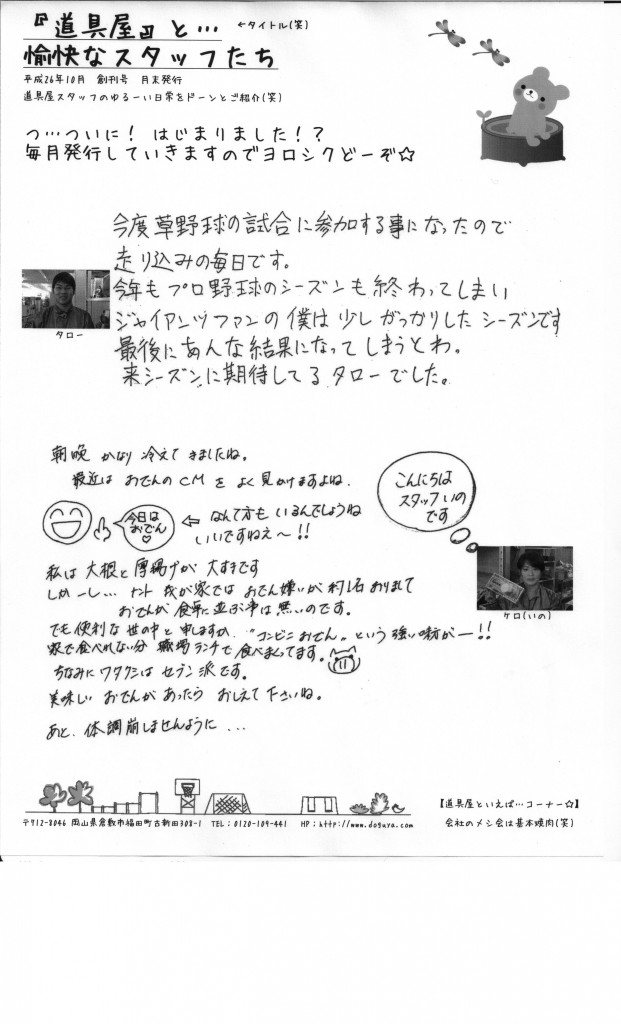 『道具屋』と… ←タイトル(笑)
愉快なスタッフたち
平成26年10月 創刊号 月末発行
道具屋スタッフのゆるーい日常をドーンとご紹介(笑)
つ…ついに！ はじまりました！？
毎月発行していきますのでヨロシクどーぞ☆
今度草野球の試合に参加する事になったので
走り込みの毎日です。
今年もプロ野球のシーズンも終わってしまい
ジャイアンツファンの僕は少しがっかりしたシーズンです
最後にあんな結果になってしまうとわ。
来シーズンに期待してるタローでした。
タロー
朝晩 かなり 冷えて きましたね。
最近は おでんの CM を よく 見かけますよね。
今日は
おでん
♡
⇐ なんて方も いるんでしょうね
いいですねえ～!!
こんにちは
スタッフいの
です
ケロ(いの)
私は 大根と 厚揚げが 大すきです
しかーし… ナント 我が家では おでん嫌いが 約1名 おりまして
おでんが 食卓に 並ぶ事は 無いのです。
でも便利な 世の中と 申しますか、"コンビニおでん" という 強い味方がー!!
家で食べれない分 職場ランチで 食べまくってます。
ちなみに ワタクシは セブン派です。
美味しい おでんが あったら おしえて 下さいね。
あと、体調崩しませんように ...
〒712-8046 岡山県倉敷市福田町古新田308-1 TEL：0120-109-441 HP：http://www.doguya.com
【道具屋といえば…コーナー☆】
会社のメシ会は基本焼肉(笑)